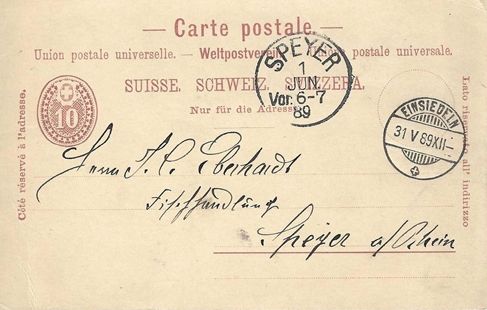 — Carte postale. —
Union postale universelle. — Weltpostverein. — Unione postale universale.
SUISSE. SCHWEIZ. SVIZZERA.
Nur für die Adresse.
Côté réservé à l'adresse.
10
Lato riservato all' indirizzo
SPEYER
1
JUN
Vor. 6-7
89
EINSIEDELN
31 V 89 XII—
Herrn J. C. Eberhardt
Fischhandlung
Speyer a/Rhein